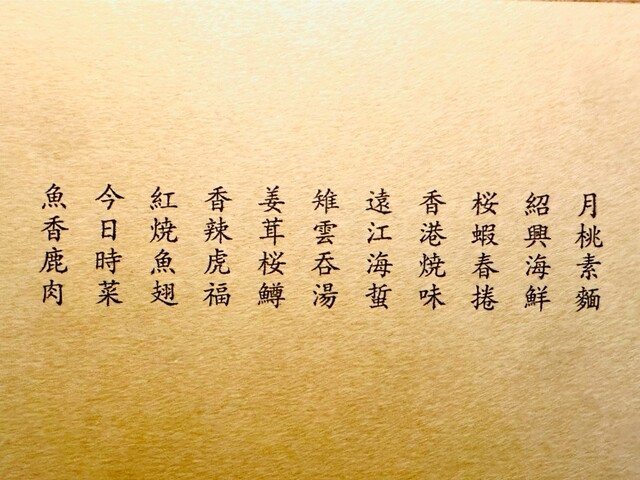 月桃素麺
紹興海鮮
桜蝦春捲
香港焼味
遠江海蜇
雉雲呑湯
姜茸桜鱒
香辣虎福
紅焼魚翅
今日時菜
魚香鹿肉